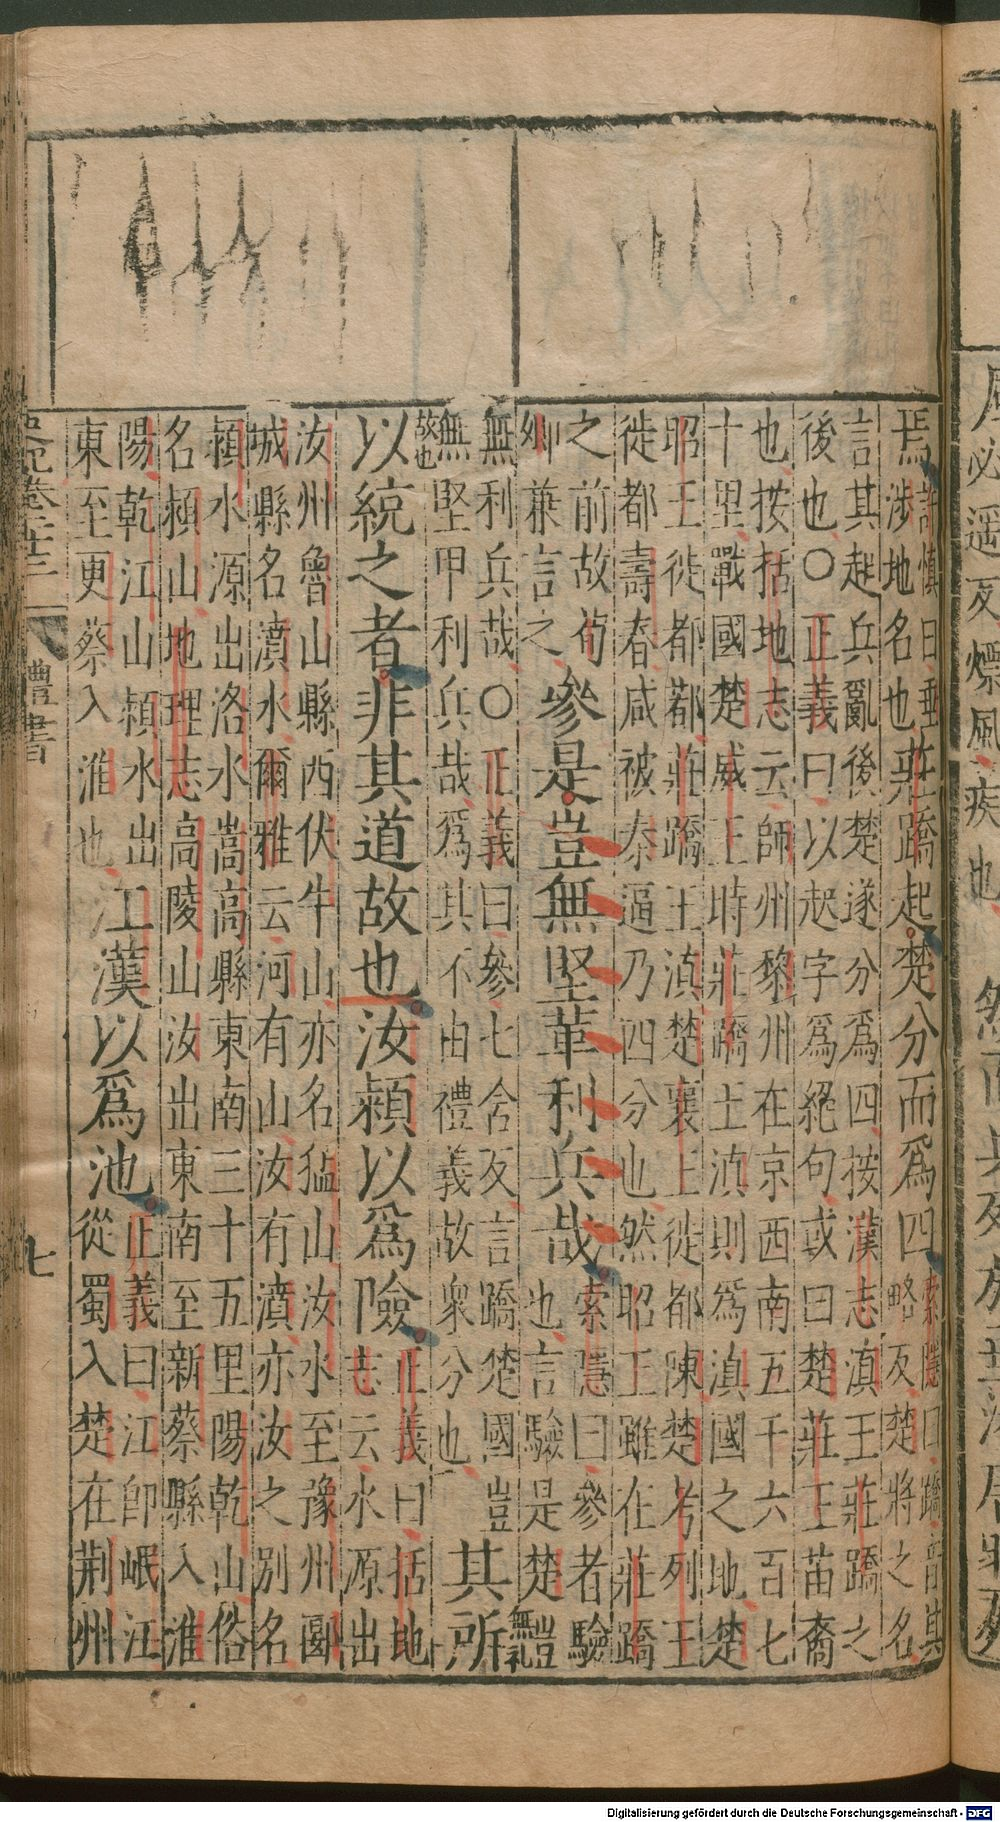 焉許慎曰垂
涉地名也莊蹻起楚分而為四索隱曰蹻音其
略反楚將之名
言其起兵亂後楚遂分為四按漢志滇王莊蹻之
後也○正義曰以起字為絕句或曰楚莊王苗裔
也按括地志云師州黎州在京西南五千六百七
十里戰國楚威王時莊蹻王滇則為滇國之地楚
昭王徙都鄀莊蹻王滇楚襄王徙都陳楚考列王
徙都壽春咸被秦逼乃四分也然昭王雖在莊蹻
之前故荀
卿兼言之參是豈無堅革利兵哉索隱曰參者驗
也言驗是楚豈無礼
無利兵哉○正義曰參七含反言蹻楚國豈
無堅甲利兵哉為其不由禮義故衆分也其所
故也
以統之者非其道故也汝潁以為險正義曰括地
志云水源出
汝州魯山縣西伏牛山亦名猛山汝水至豫州郾
城縣名濆水爾雅云河有山汝有濆亦汝之別名
潁水源出洛水嵩高縣東南三十五里陽乾山俗
名潁山地理志高陵山汝出東南至新蔡縣入淮
陽乾江山潁水出
東至更蔡入淮也江漢以為池正義曰江即岷江
從蜀入楚在荊州
史記卷二十三 禮書 七
Digitalisierung gefördert durch die Deutsche Forschungsgemeinschaft - DFG